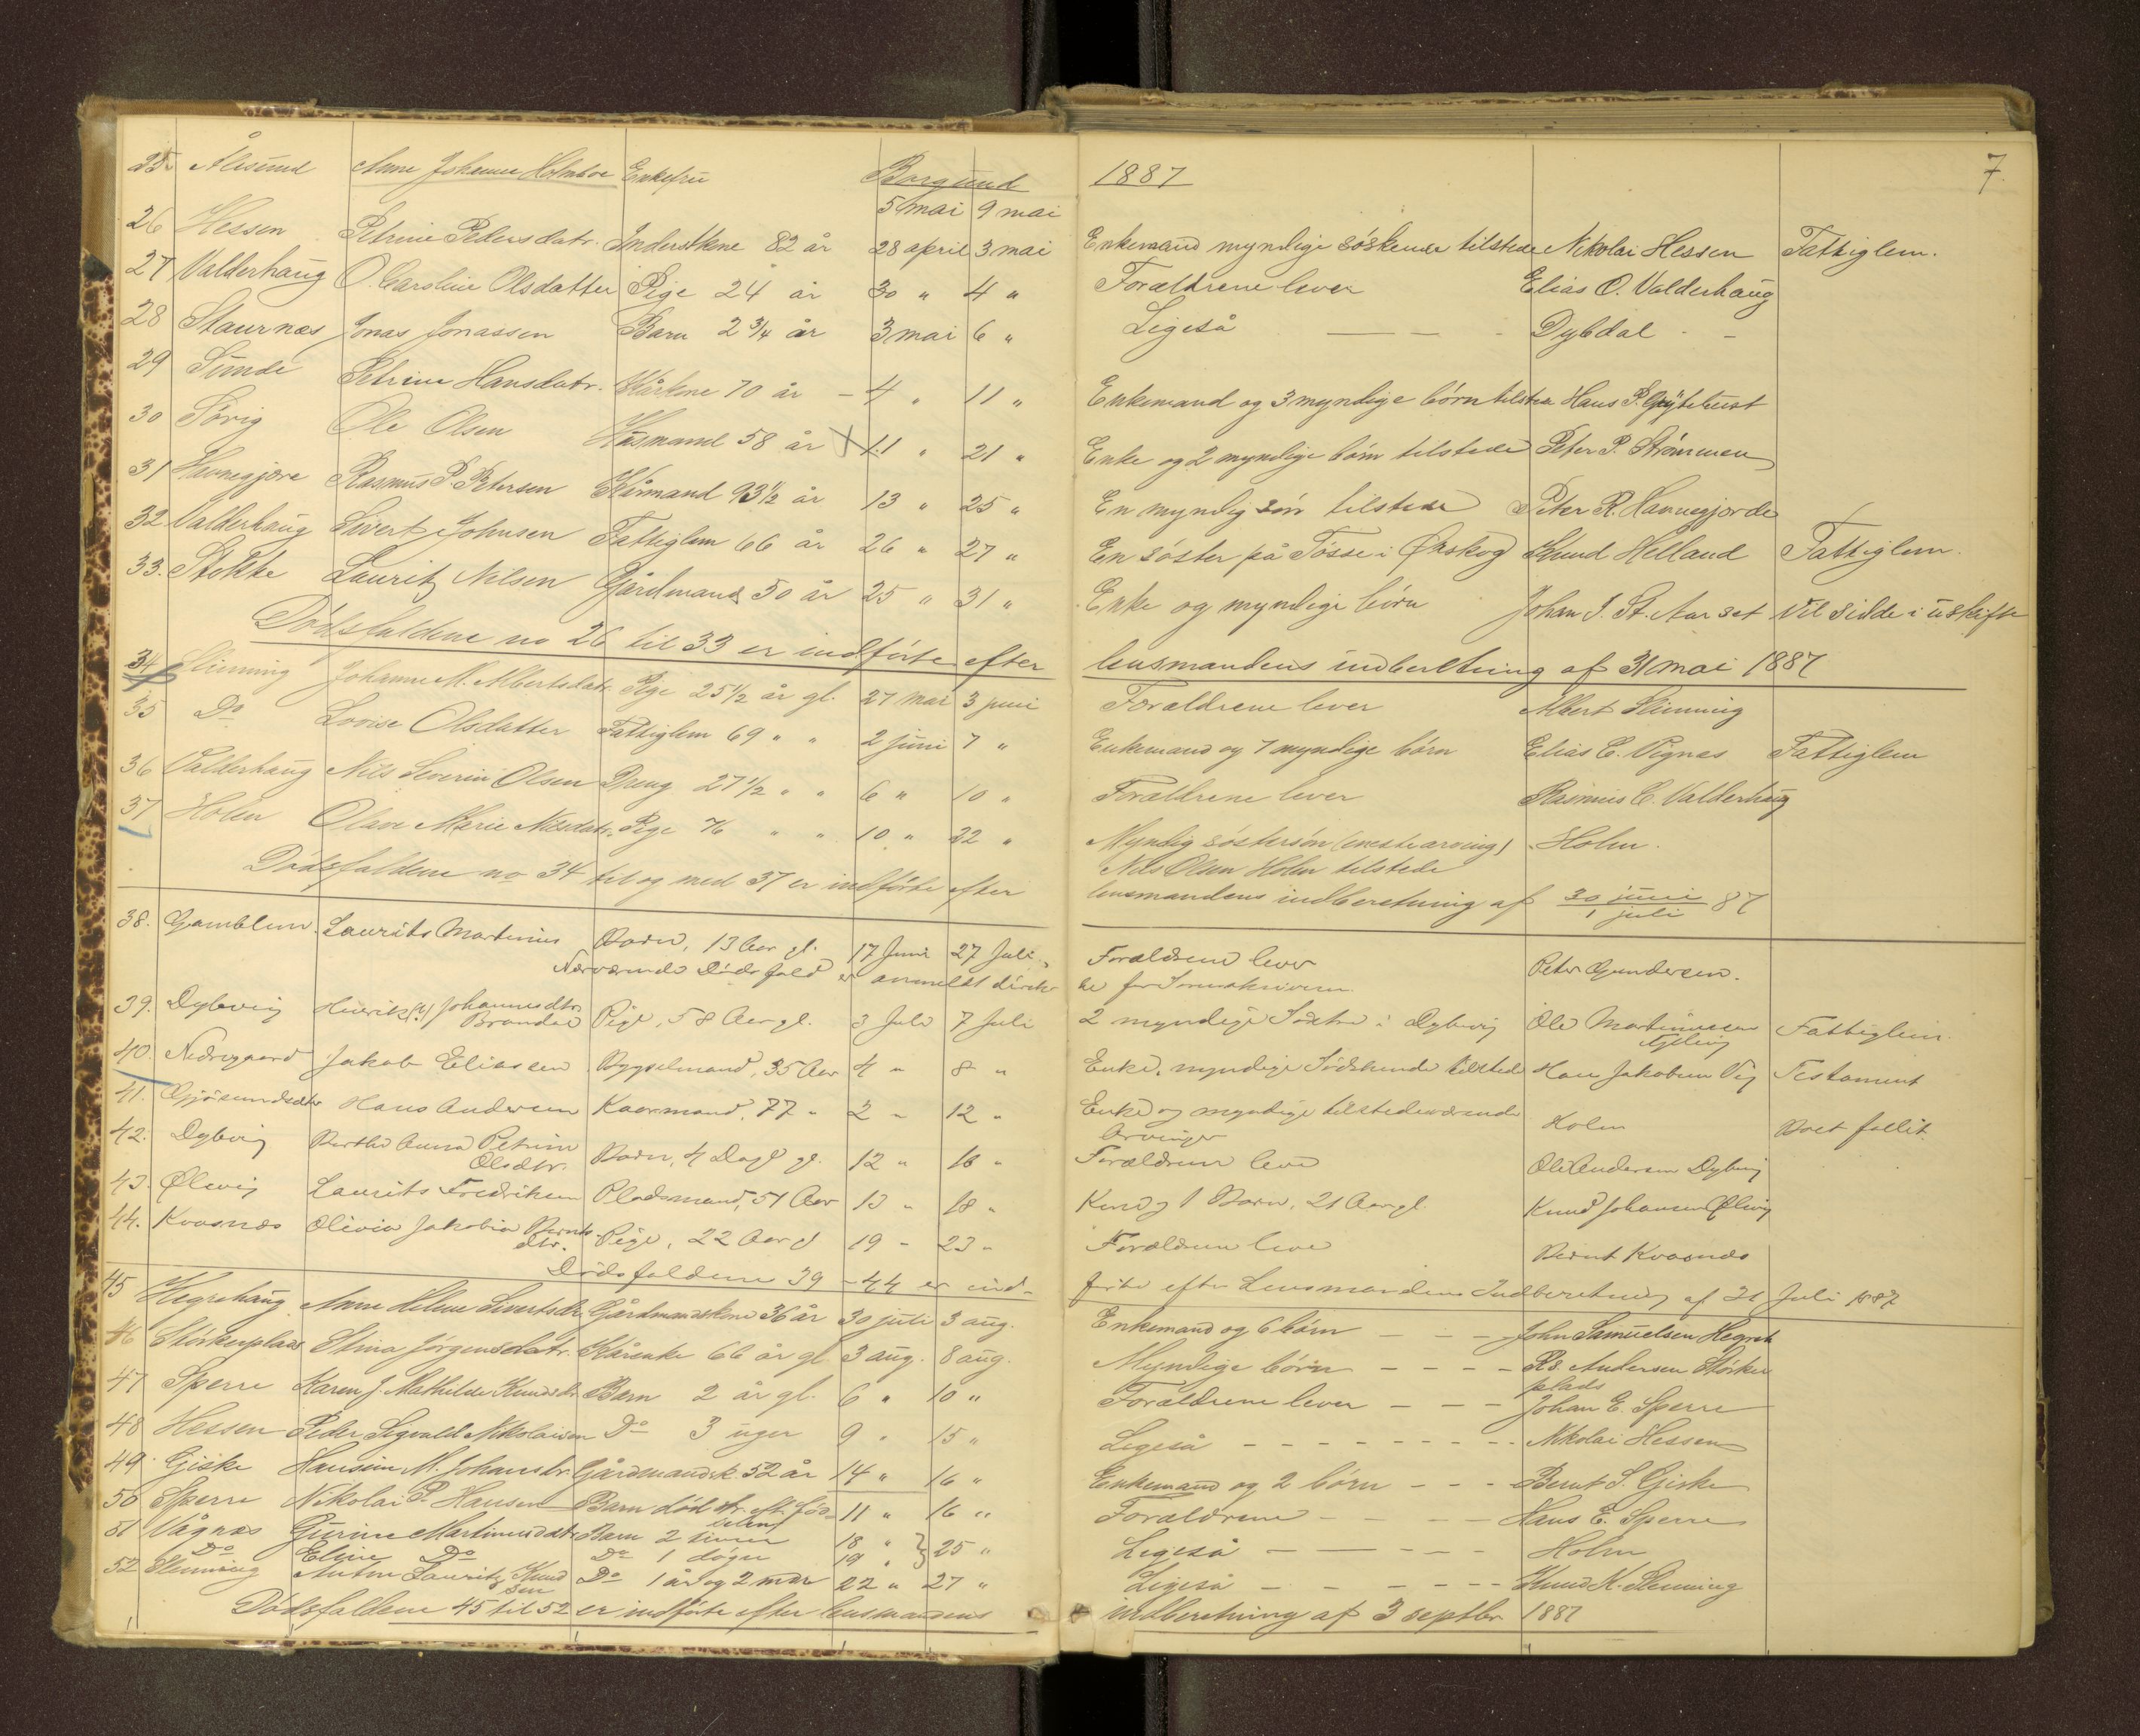 Borgund 1887 7.
25. Ålesund Anne Johanne Holmboe Enkefru 5 mai 9 mai
26 Hessen Petrine Pedersdatr. Inderstkone 82 år 28 april 3 mai Enkemand myndige söskende tilstede Nikolai Hessen Fattiglem.
27 Valderhaug O. Caroline Olsdatter Pige 24 år 30 " 4 " Forældrene lever Elias O. Valderhaug
28 Staurnæs Jonas Jonassen Barn 2 3/4 år 3 mai 6 " Ligeså — — - Dybdal - -
29 Sunde Petrine Hansdatr. Kårkone 70 år - 4 " 11 " Enkemand og 3 myndige börn tilstede Hans P.
30 Sørig Ole Olsen Husmand 58 år 11 " 21 " Enke og 2 myndige börn tilstede Peter P. Strømmen
31 Havnegjøre Rasmus P. Petersen Kårmand 93 1/2 år 13 " 25 " En myndig sön tilstede Peter R. Havnegjorde
32 Valderhaug Sivert Johnsen Fattiglem 66 år 26 " 27 " En söster på Tösse i Ørskog Knud Helland Fattiglem.
33. Stokke Lauritz Nilsen Gårdmand 50 år 25 " 31 " Enke og myndige börn Johan J. St. Aarset Vil sidde i uskifte
Dödsfaldene no 26 til 33 er indförte efter lensmandens indberetning af 31 mai 1887
34 Slinning Johanne M. Albertsdatr. Pige 25 1/2 år gl. 27 mai 3 juni Forældrene lever Albert Slinning
35 Do Lovise Olsdatter Fattiglem 69 " " 2 juni 7 " Enkemand og 7 myndige börn Elias E. Vignes Fattiglem
36 Valderhaug Nils Severin Olsen Dreng 27 1/2 " " 6 " 10 " Forældrene lever Rasmus C. Valderhaug
37 Holen Olave Marie Nilsdatr. Pige 76 " " 10 " 22 " Myndig söstersön (eneste arving) Holm.
Nils Olsen Holen tilstede
Dödsfaldene no 34 til og med 37 er indförte efter lensmandens indberetning af 30 juni / 1 juli 87
38. Gamblem Laurits Martinius Barn, 13 Aar gl. 17 Juni 27 Juli. Forældrene lever Peter Gundersen.
Nærværende Dödsfald er anmeldt direkte for Sorenskriveren.
39. Dybevig Henrik(?) Johannesdtr. Brandal Pige, 58 Aar gl. 3 Juli 7 Juli 2 myndige Söstre i Dybevig Ole Martinussen Fattiglem.
40. Nedregaard Jakob Eliassen Bygselmand, 35 Aar 4 " 8 " Enke, myndige Södskende tilstede Hans Jakobsen Veg Testament
41. Gjösundsæter Hans Andersen Kaarmand, 77 " 2 " 12 " Enke og myndige tilstedeværende Arvinger Holm Boet fallit.
42. Dybvig Berthe Anna Petrine Olsdtr. Barn, 4 Dage gl. 12 " 16 " Forældrene leve Ole Andersen Dybvig
43. Ølevig Laurits Fredriksen Pladsmand, 51 Aar 13 " 18 " Kone og 1 Barn, 21 Aar gl. Knud Johansen Ølevig
44. Kvasnæs Olivia Jakobia Berntsdtr. Pige, 22 Aar gl 19 " 23 " Forældrene leve Bernt Kvasnæs
Dödsfaldene 39 - 44 er indförte efter Lensmandens Indberetning af 31 Juli 1887
45 Hegrehaug Anne Helene Sivertsdtr. Gårdmandskone 36 år 30 juli 3 aug. Enkemand og 6 börn - - - John Samuelsen Hegreh
46 Störkenplads Stina Jörgensdatr. Kårenke 66 år gl. 3 aug. 8 aug. Myndige börn - - - - Rs. Andersen Störkenplads
47 Sperre Karen J. Mathilde Knudsdtr. Barn 2 år gl. 6 " 10 " Forældrene lever - - - Johan E. Sperre
48 Hessen Peder Sigvald Nikolaisen Do 3 uger 9 " 15 " Ligeså - - - - - - - - Nikolai Hessen
49 Giske Hansine M. Johansdr. Gårdmandsk. 52 år 14 " 16 " Enkemand og 2 börn - - - Bernt S. Giske
50 Sperre Nikolai P. Hansen Barn död str. eft. födselen 11 " 16 " Forældrene - - - - Hans E. Sperre
51 Vågnæs Gurine Martinusdatr Barn 2 timer 18 " } 25 " Ligeså — — — - - Holm
Do Eline Do Do 1 dögn 19 "
52 Slinning Anton Lauritz Knudsen Do 1 år og 2 mdr 22 " 27 " Ligeså - - - - - - Knud K. Slinning
Dödsfaldene 45 til 52 er indförte efter lensmandens indberetning af 3 septbr 1887